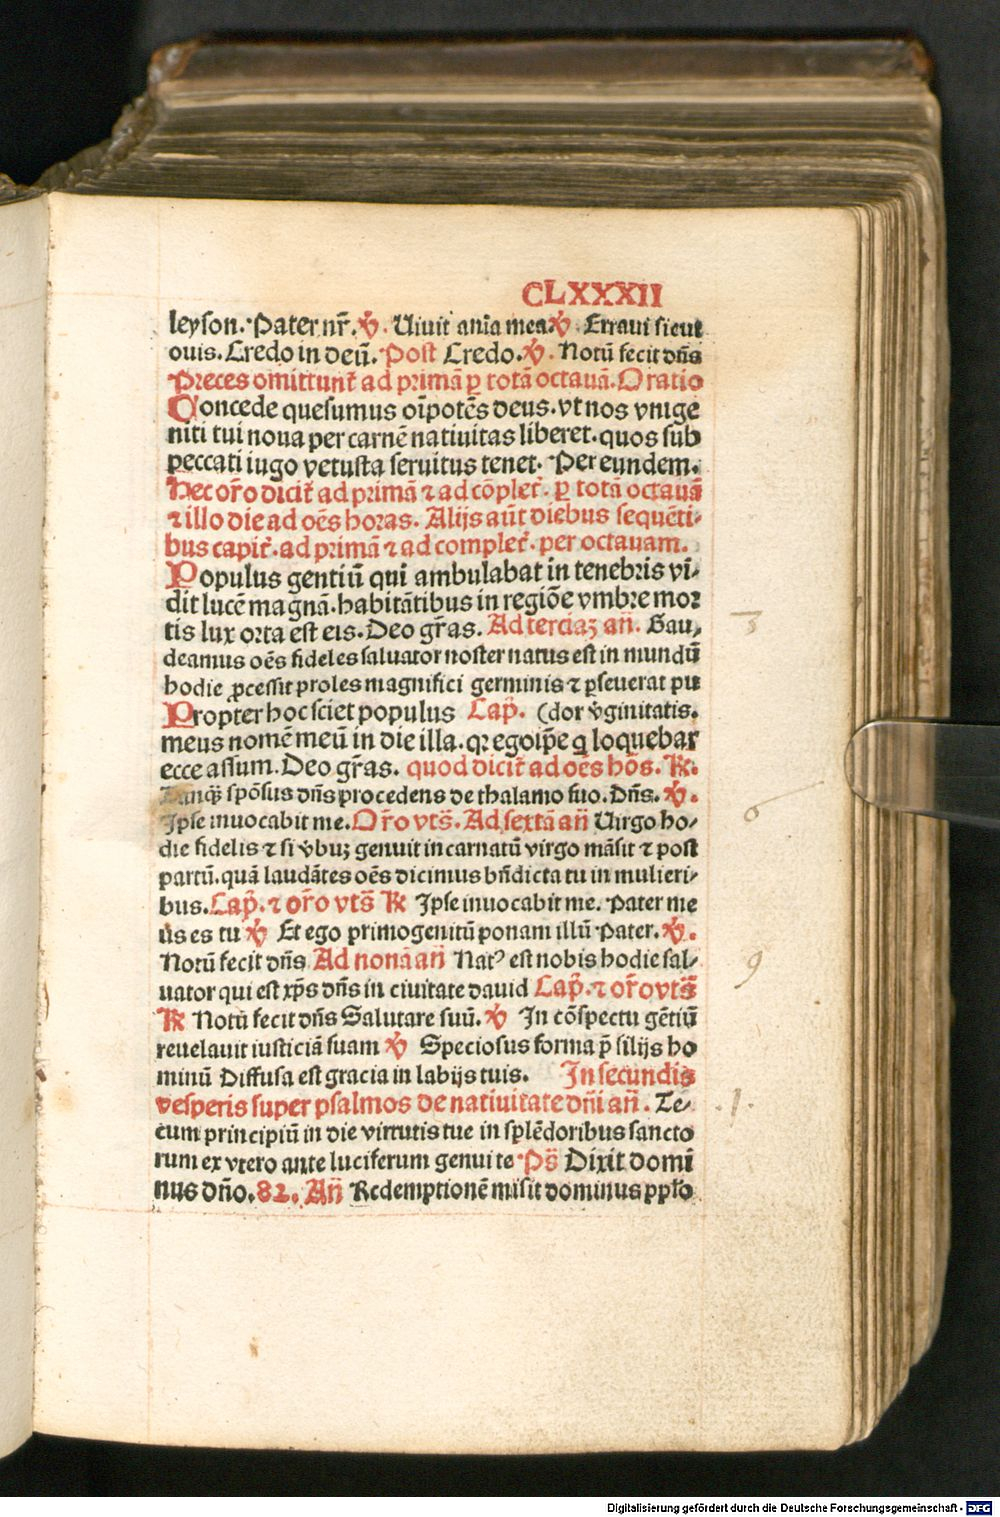 CLXXXII
leyson. Pater nr̄. ꝟ. Uiuit aīa mea. ꝟ. Erraui sicut
ouis. Credo in deū. Post Credo. ꝟ. Notū fecit dn̄s
Preces omittunt̄ ad primā ꝑ totā octauā. Oratio
Concede quesumus oīpotēs deus. vt nos vnige
niti tui noua per carnē natiuitas liberet. quos sub
peccati iugo vetusta seruitus tenet. Per eundem.
Hec or̄o dicit̄ ad primā ⁊ ad cōplet̄. ꝑ totā octauā
⁊ illo die ad oēs horas. Alijs aūt diebus sequēti⸗
bus capit̄. ad primā ⁊ ad complet̄. per octauam.
Populus gentiū qui ambulabat in tenebris vi⸗
dit lucē magnā. habitātibus in regiōe vmbre moꝛ
tis lux orta est eis. Deo gr̄as. Ad terciaꝫ an̄. Gau⸗
deamus oēs fideles saluator noster natus est in mundū
hodie ꝓcessit proles magnifici germinis ⁊ ꝑseuerat pu
Propter hoc sciet populus Cap̄. (dor ꝟginitatis.
meus nomē meū in die illa. qꝛ ego ip̄e q̄ loquebar
ecce assum. Deo gr̄as. quod dicit̄ ad oēs hōs. ℞.
Tanqꝫ spōsus dn̄s procedens de thalamo suo. Dn̄s. ꝟ.
Ipse inuocabit me. Or̄o vts̄. Ad sextā an̄ Uirgo ho⸗
die fidelis ⁊ si ꝟbuꝫ genuit incarnatū virgo māsit ⁊ post
partū. quā laudātes oēs dicimus bn̄dicta tu in mulieri⸗
bus. Cap̄. ⁊ or̄o vts̄ ℞ Ipse inuocabit me. Pater me
us es tu ꝟ Et ego primogenitū ponam illū Pater. ꝟ.
Notū fecit dn̄s Ad nonā an̄ Natꝰ est nobis hodie sal⸗
uator qui est xp̄s dn̄s in ciuitate dauid Cap̄. ⁊ or̄o vts̄
℞ Notū fecit dn̄s Salutare suū. ꝟ In cōspectu gētiū
reuelauit iusticiā suam ꝟ Speciosus forma p̄ filijs ho
minū Diffusa est gracia in labijs tuis. In secundis
vesperis super psalmos de natiuitate dn̄i an̄. Te⸗
cum principiū in die virtutis tue in splēdoribus sancto
rum ex vtero ante luciferum genui te Ps̄ Dixit domi
nus dn̄o. 82. An̄ Redemptionē misit dominus pplo
3
6
9
.1.
Digitalisierung gefördert durch die Deutsche Forschungsgemeinschaft - DFG